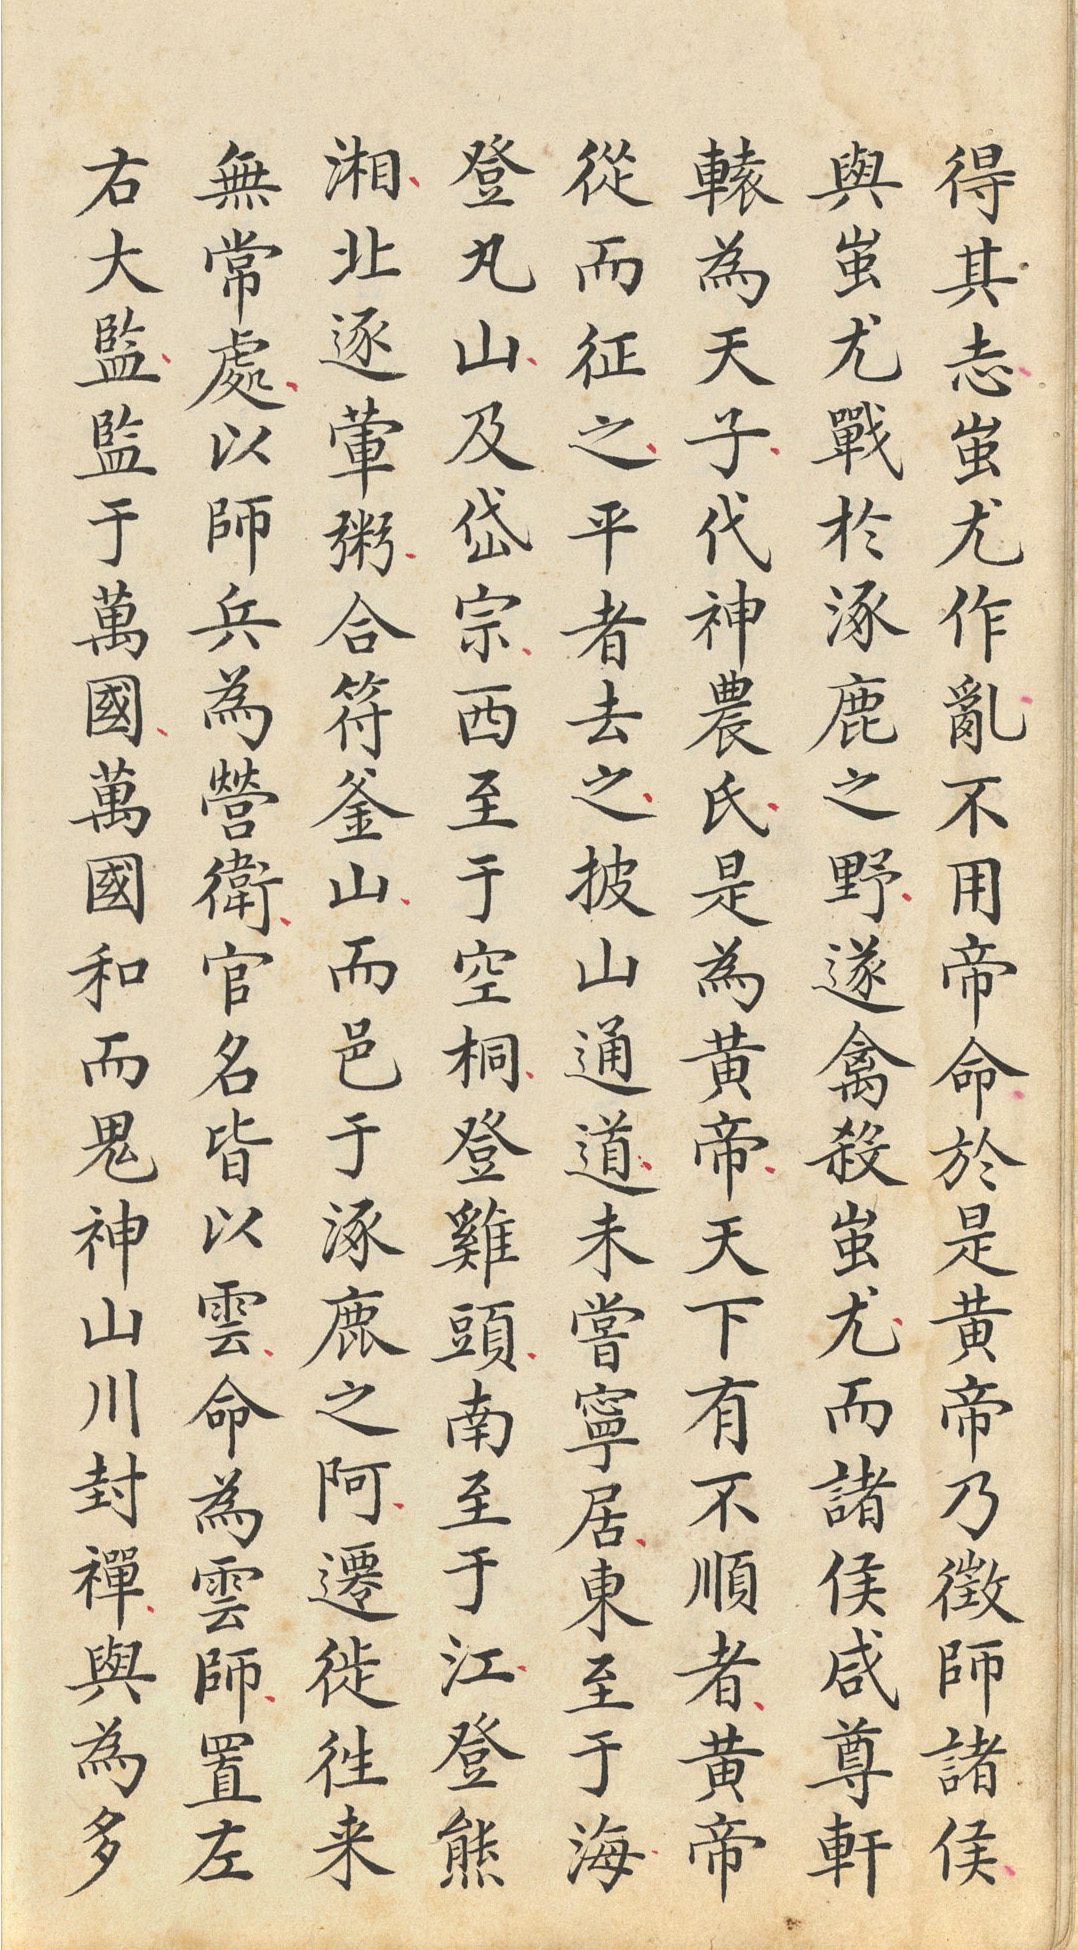 得其志蚩尤作亂不用帝命於是黄帝乃徵師諸侯
與蚩尤戰於涿鹿之野遂禽殺蚩尤而諸侯咸尊軒
轅為天子代神農氏是為黄帝天下有不順者黄帝
從而征之平者去之披山通道未嘗寧居東至于海
登丸山及岱宗西至于空桐登雞頭南至于江登熊
湘北逐葷粥合符釜山而邑于涿鹿之阿遷徙徃来
無常處以師兵為營衛官名皆以雲命為雲師置左
右大監監于萬國萬國和而鬼神山川封禪與為多